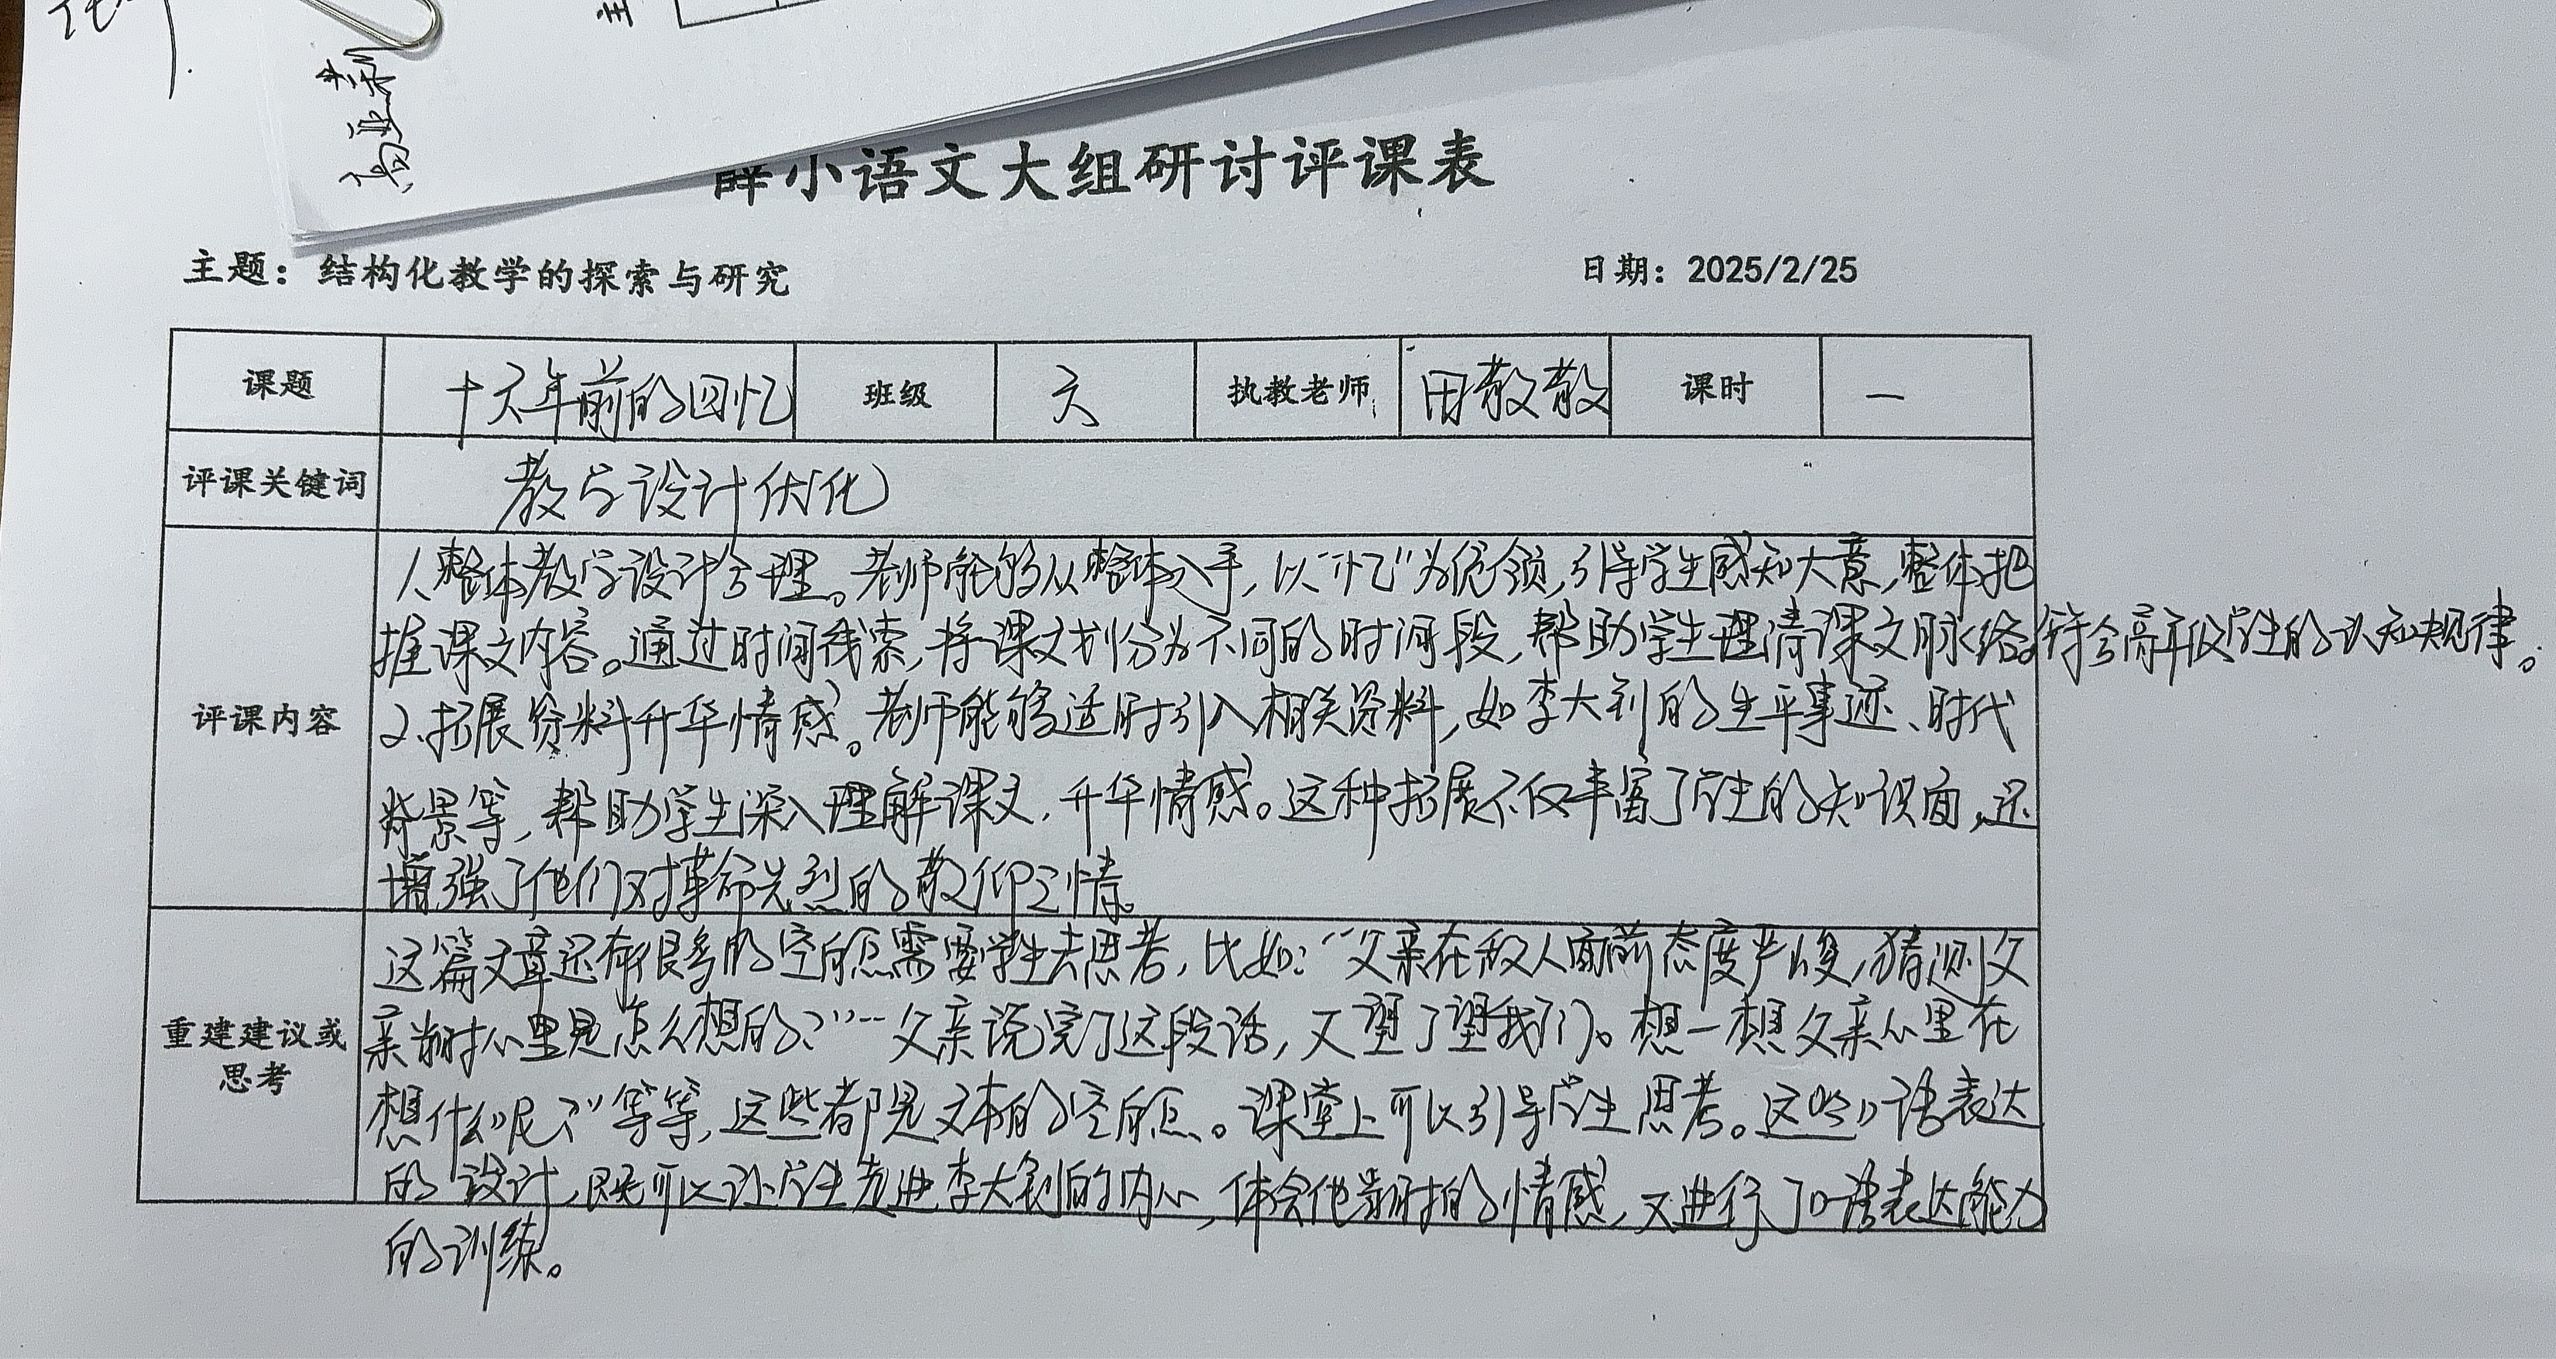 小语文大组研讨评课表
主题：结构化教学的探索与研究 日期：2025/2/25
课题 十六年前的回忆 班级 六 执教老师 课时 一
评课关键词 教学设计优化
评课内容
1、整体教学设计合理。老师能够从整体入手，以“忆”为统领，引导学生感知大意，整体把
握课文内容。通过时间线索，将课文划分为不同的时间段，帮助学生理清课文脉络。符合高年级学生的认知规律。
2、拓展资料升华情感。老师能够适时引入相关资料，如李大钊的生平事迹、时代
背景等，帮助学生深入理解课文，升华情感。这种拓展不仅丰富了学生的知识面，还
增强了他们对革命先烈的敬仰之情。
重建建议或
思考
这篇文章还有很多的空白点需要学生去思考，比如：“父亲在敌人面前态度严峻，猜测父
亲当时心里是怎么想的？”“父亲说完了这段话，又望了望我们。想一想父亲心里在
想什么呢？”等等，这些都是文本的空白点。课堂上可以引导学生思考。这些口语表达
的设计，既可以让学生走进李大钊的内心，体会他当时的情感，又进行了口语表达能力
的训练。